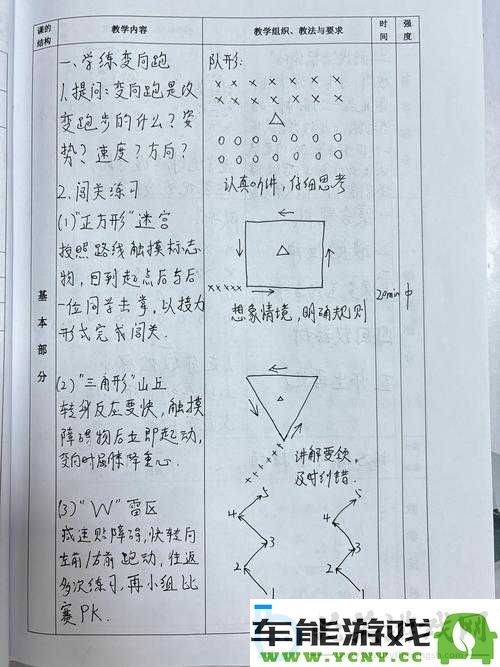 课的结构
教学内容
教学组织、教法与要求
时间
强度
基本部分
一、学练变向跑
1.提问：变向跑是改
变跑步的什么？姿
势？速度？方向？
2.闯关练习
(1)"正方形"迷宫
按照路线触摸标志
物，回到起点后与后
一位同学击掌，以接力
形式完成闯关.
(2)"三角形"山丘
转身反应要快，触摸
障碍物后立即起动，
变向时屈膝降重心.
(3)"W"雷区
减速贴障碍，快转向
左前/右前跑动，往返
多次练习，再小组比
赛PK.
队形：
x x x x x x x x
x x x x x x x x
o o o o o o o o
o o o o o o o o
认真听讲，仔细思考
xxxxx
想象情境，明确规则
20min
中
xxxxxx
讲解要领，
及时纠错.
5
4
3
2
1
5
4
3
2
1
车能游戏
www.YCNY.CC